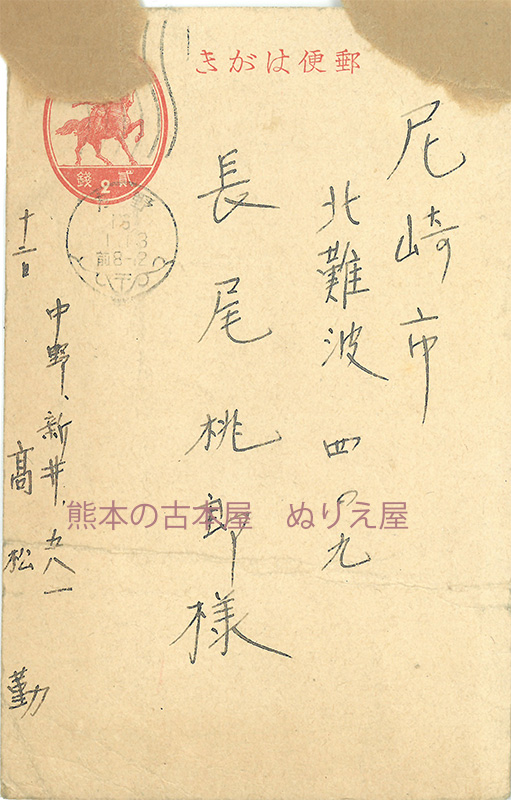 きがは便郵
貳
2
錢
中野
前8-12
尼崎市
北難波四〇九
長尾桃郎様
十二日
中野、新井、五八一
高松勤
熊本の古本屋　ぬりえ屋